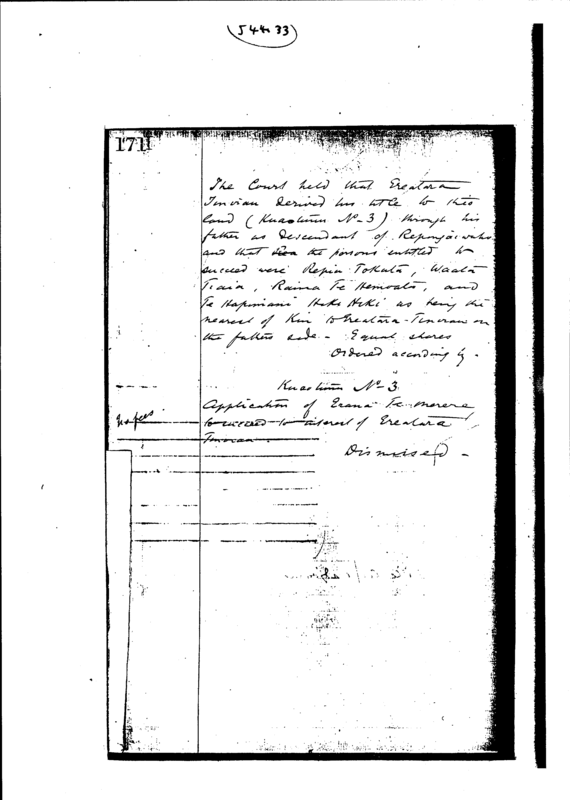 (544 33)
171
The Court held that Ereatara
Tinirau derived his title to this
land (Kuaotunu No-3) through his
father as Descendant of
and that the persons entitled to
succeed were Repia Tokata, Waata
Tiaia, Raima Te Hemoata, and
Te Hapimana Heke Heke as being the
nearest of Kin to Ereatara-Tinirau on
the fathers side - Equal shares
Ordered accordingly -
Kuaotunu No 3
Application of Erana Te
no fees
to succeed to interest of Ereatara
Tinirau
Dismissed -